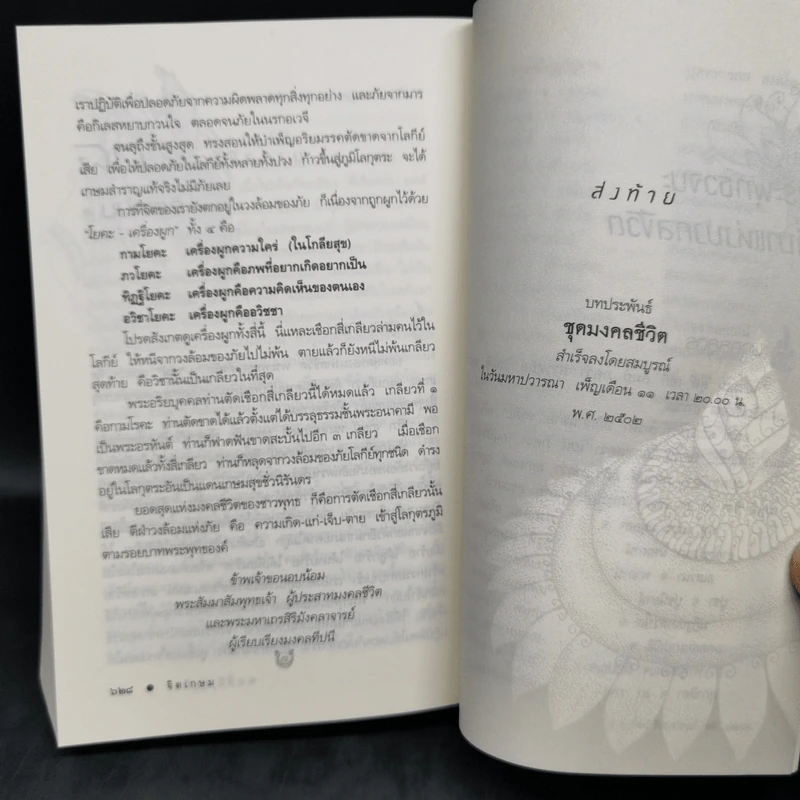 เราปฏิบัติเพื่อปลอดภัยจากความผิดพลาดทุกสิ่งทุกอย่าง และภัยจากมาร
คือกิเลสหยาบกวนใจ ตลอดจนภัยในนรกอเวจี
จนลุถึงขั้นสูงสุด ทรงสอนให้บำเพ็ญอริยมรรคตัดขาดจากโลกีย์
เสีย เพื่อให้ปลอดภัยในโลกีย์ทั้งหลายทั้งปวง ก้าวขึ้นสู่ภูมิโลกุตระ จะได้
เกษมสำราญแท้จริงไม่มีภัยเลย
การที่จิตของเรายังตกอยู่ในวงล้อมของภัย ก็เนื่องจากถูกผูกไว้ด้วย
"โยคะ - เครื่องผูก" ทั้ง ๔ คือ
กามโยคะ เครื่องผูกความใคร่ (ในโกลียสุข)
ภวโยคะ เครื่องผูกคือภพที่อยากเกิดอยากเป็น
ทิฏฐิโยคะ เครื่องผูกคือความคิดเห็นของตนเอง
อวิชาโยคะ เครื่องผูกคืออวิชชา
โปรดสังเกตดูเครื่องผูกทั้งสี่นี้ นี่แหละเชือกสี่เกลียวล่ามคนไว้ใน
โลกีย์ ให้หนีจากวงล้อมของภัยไปไม่พ้น ตายแล้วก็ยังหนีไม่พ้นเกลียว
สุดท้าย คือวิชานั้นเป็นเกลียวในที่สุด
พระอริยบุคคลท่านตัดเชือกสี่เกลียวนี้ได้หมดแล้ว เกลียวที่ ๑
คือกามโรคะ ท่านตัดขาดได้แล้วตั้งแต่ได้บรรลุธรรมชั้นพระอนาคามี พอ
เป็นพระอรหันต์ ท่านก็ฟาดฟันขาดสะบั้นไปอีก ๓ เกลียว เมื่อเชือก
ขาดหมดแล้วทั้งสี่เกลียว ท่านก็หลุดจากวงล้อมของภัยโลกีย์ทุกชนิด ดำรง
อยู่ในโลกุตระอันเป็นแดนเกษมสุขชั่วนิรันดร
ยอดสุดแห่งมงคลชีวิตของชาวพุทธ ก็คือการตัดเชือกสี่เกลียวนั้น
เสีย ตีฝ่าวงล้อมแห่งภัย คือ ความเกิด-แก่-เจ็บ-ตาย เข้าสู่โลกุตรภูมิ
ตามรอยบาทพระพุทธองค์
ข้าพเจ้าขอนอบน้อม
พระสัมมาสัมพุทธเจ้า ผู้ประสาทมงคลชีวิต
และพระมหาเถรสิริมังคลาจารย์
ผู้เรียบเรียงมงคลทีปนี
๖๒๘ จิตเกษม
ส่งท้าย
บทประพันธ์
ชุดมงคลชีวิต
สำเร็จลงโดยสมบูรณ์
ในวันมหาปวารณา เพ็ญเดือน ๑๑ เวลา ๒๐.๐๐ น.
พ.ศ. ๒๕๐๒